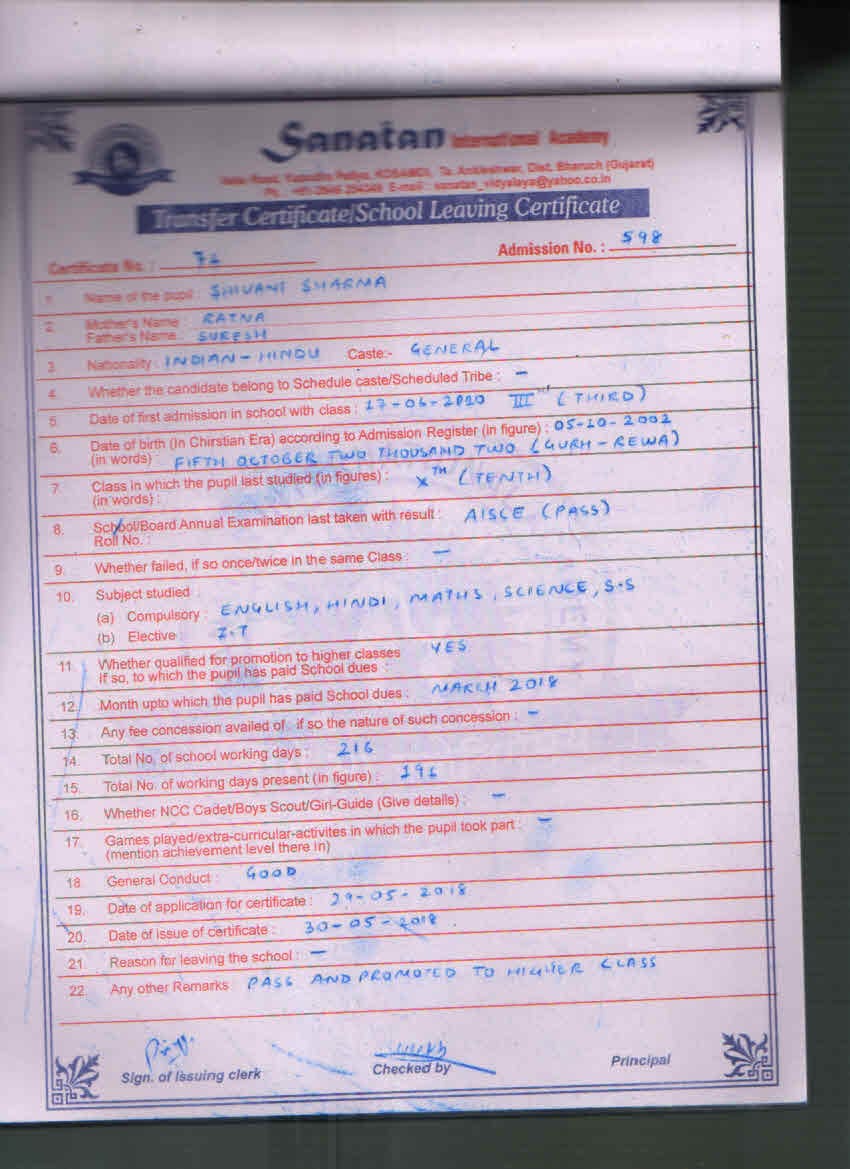 Sanatan International Academy
KOSAMDI, Ta. Ankleshwar, Dist. Bharuch (Gujarat)
E-mail : sanatan_vidyalaya@yahoo.co.in
Transfer Certificate/School Leaving Certificate
Certificate No. : Admission No. : 598
1. Name of the pupil : SHIVANI SHARMA
2. Mother's Name : RATNA
Father's Name : SURESH
3. Nationality : INDIAN - HINDU Caste:- GENERAL
4. Whether the candidate belong to Schedule caste/Scheduled Tribe : -
5. Date of first admission in school with class : 17-06-2010 III (THIRD)
6. Date of birth (In Chirstian Era) according to Admission Register (in figure) : 05-10-2002
(in words) : FIFTH OCTOBER TWO THOUSAND TWO (GURH - REWA)
7. Class in which the pupil last studied (in figures) : XTH (TENTH)
(in words) :
8. School/Board Annual Examination last taken with result : AISCE (PASS)
Roll No. :
9. Whether failed, if so once/twice in the same Class : -
10. Subject studied :
(a) Compulsory : ENGLISH, HINDI, MATHS, SCIENCE, S.S
(b) Elective : I.T
11. Whether qualified for promotion to higher classes YES
If so, to which the pupil has paid School dues :
12. Month upto which the pupil has paid School dues : MARCH 2018
13. Any fee concession availed of if so the nature of such concession : -
14. Total No. of school working days : 216
15. Total No. of working days present (in figure) :
16. Whether NCC Cadet/Boys Scout/Girl-Guide (Give details) : -
17. Games played/extra-curricular-activites in which the pupil took part : -
(mention achievement level there in)
18. General Conduct : GOOD
19. Date of application for certificate : 29-05-2018
20. Date of issue of certificate : 30-05-2018
21. Reason for leaving the school : -
22. Any other Remarks PASS AND PROMOTED TO HIGHER CLASS
Sign. of Issuing clerk Checked by Principal